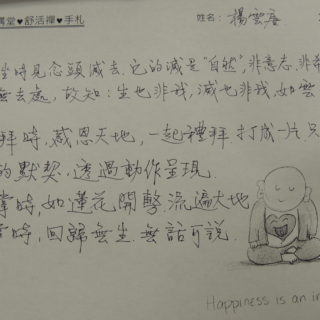 講堂♥舒活禪♥手札 姓名：楊雲
坐時見念頭滅去，它的滅是"自然"，非意志，非希
無去處，故知：生也非我，滅也非我，如雲
拜時，感恩天地，一起禮拜 打成一片 只
的默契，透過動作呈現
掌時，如蓮花開擊，流遍大地
堂時，回歸無生，無話可說．
Happiness is an in